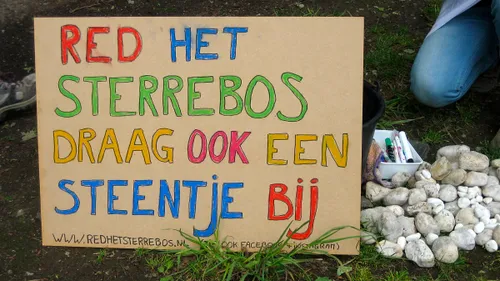 RED HET
STERREBOS
DRAAG OOK EEN
STEENTJE BIJ
WWW.REDHETSTERREBOS.NL OOK FACEBOOK